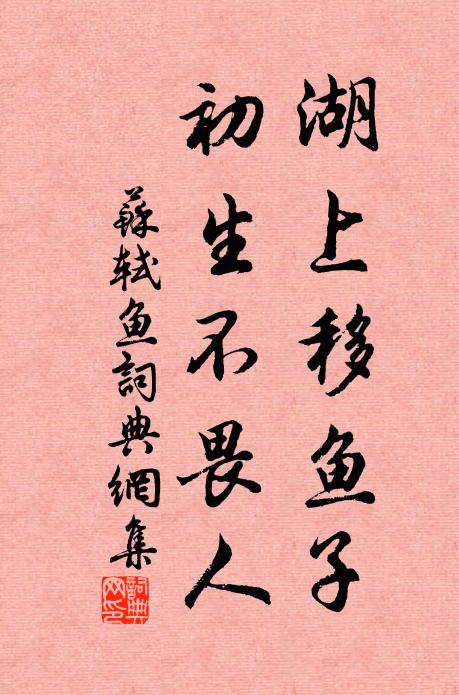 湖上移鱼子
初生不畏人
蘇軾鱼詞典網集
詞典
网印